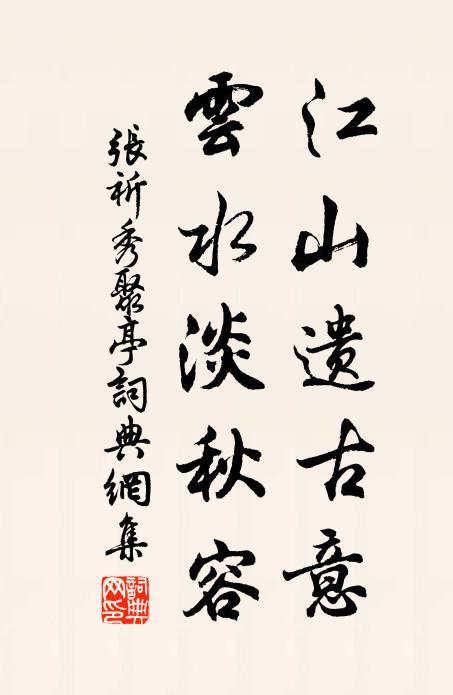 江山遺古意
雲水淡秋容
張祈秀聚亭詞典網集
詞典網印